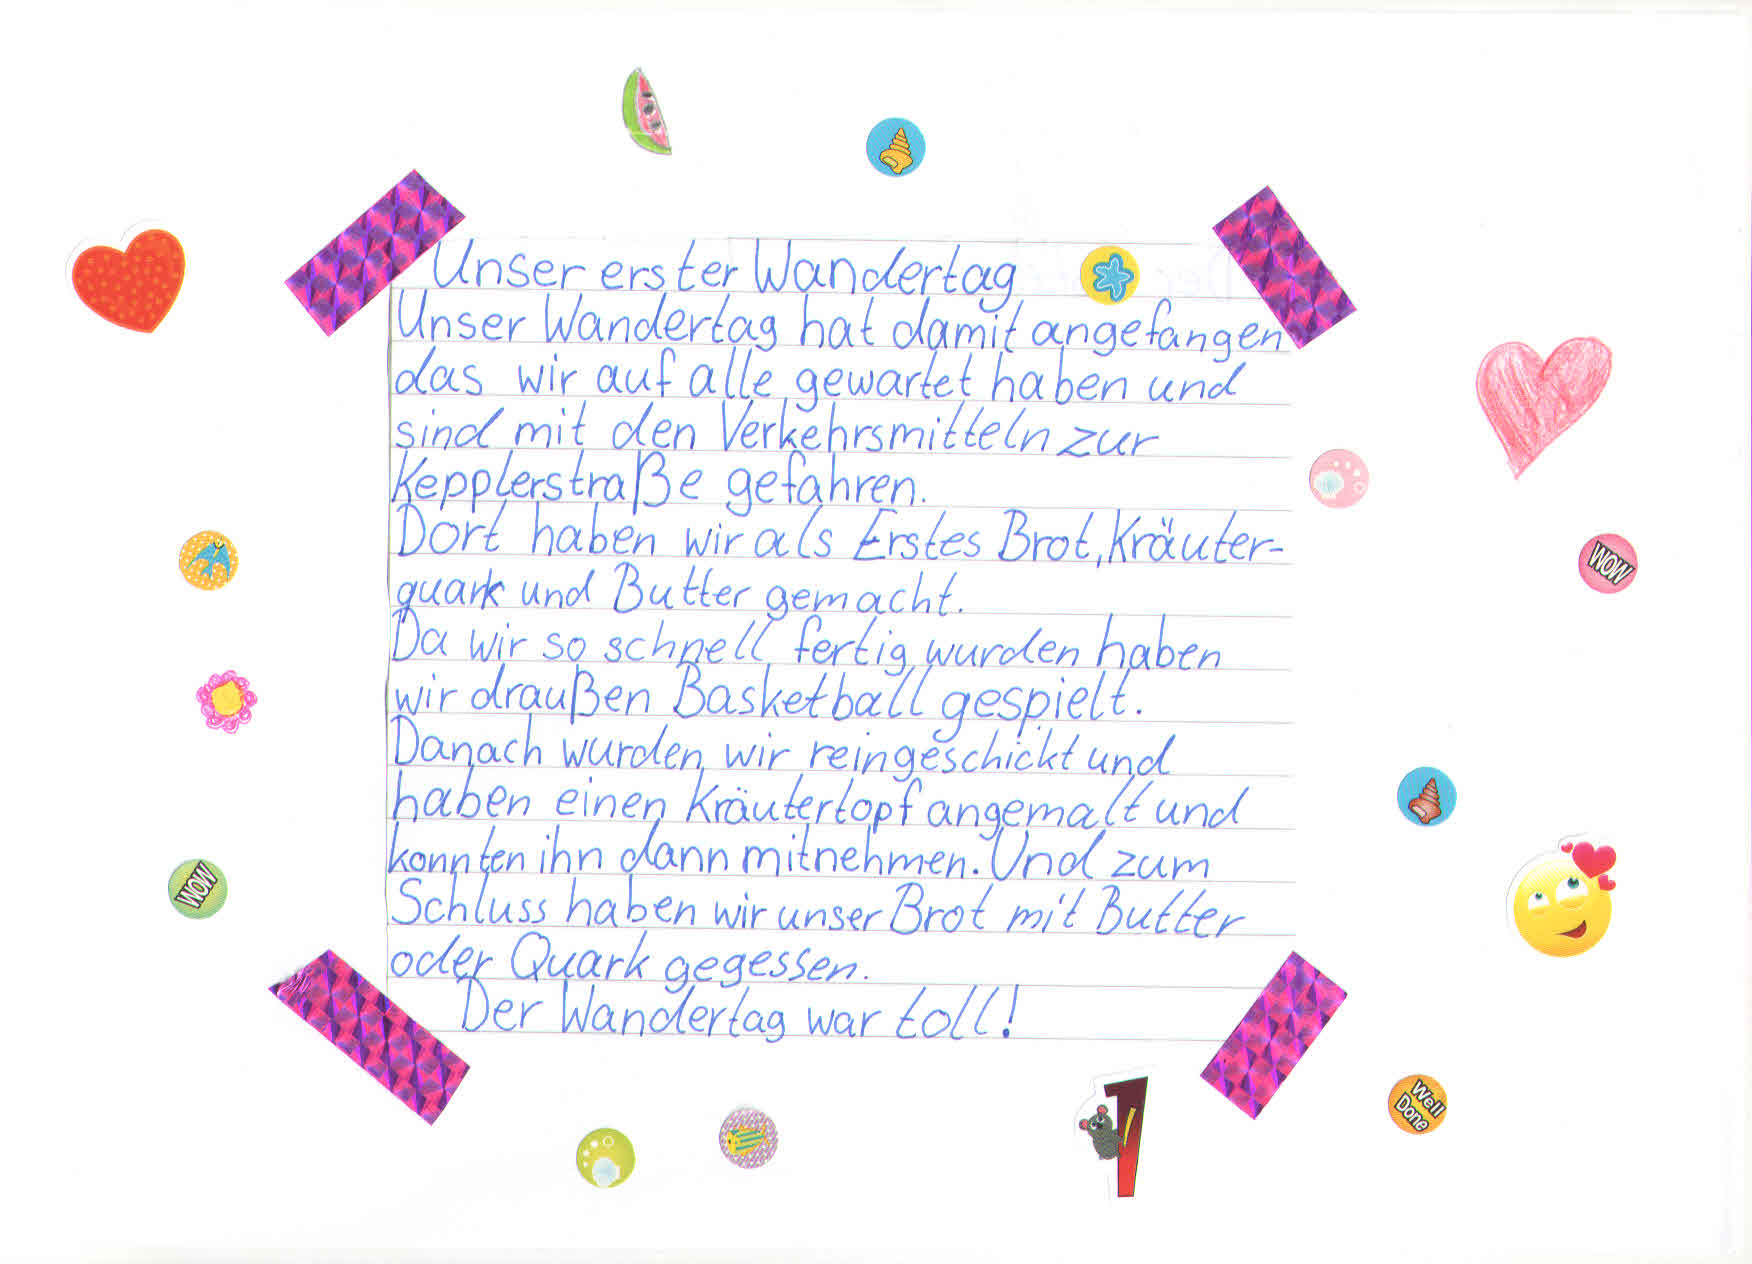 Unser erster Wandertag
Unser Wandertag hat damit angefangen
das wir auf alle gewartet haben und
sind mit den Verkehrsmitteln zur
Kepplerstraße gefahren.
Dort haben wir als Erstes Brot, Kräuter-
quark und Butter gemacht.
Da wir so schnell fertig wurden haben
wir draußen Basketball gespielt.
Danach wurden wir reingeschickt und
haben einen Kräutertopf angemalt und
konnten ihn dann mitnehmen. Und zum
Schluss haben wir unser Brot mit Butter
oder Quark gegessen.
Der Wandertag war toll!
WOW
WOW
Well
Done
1